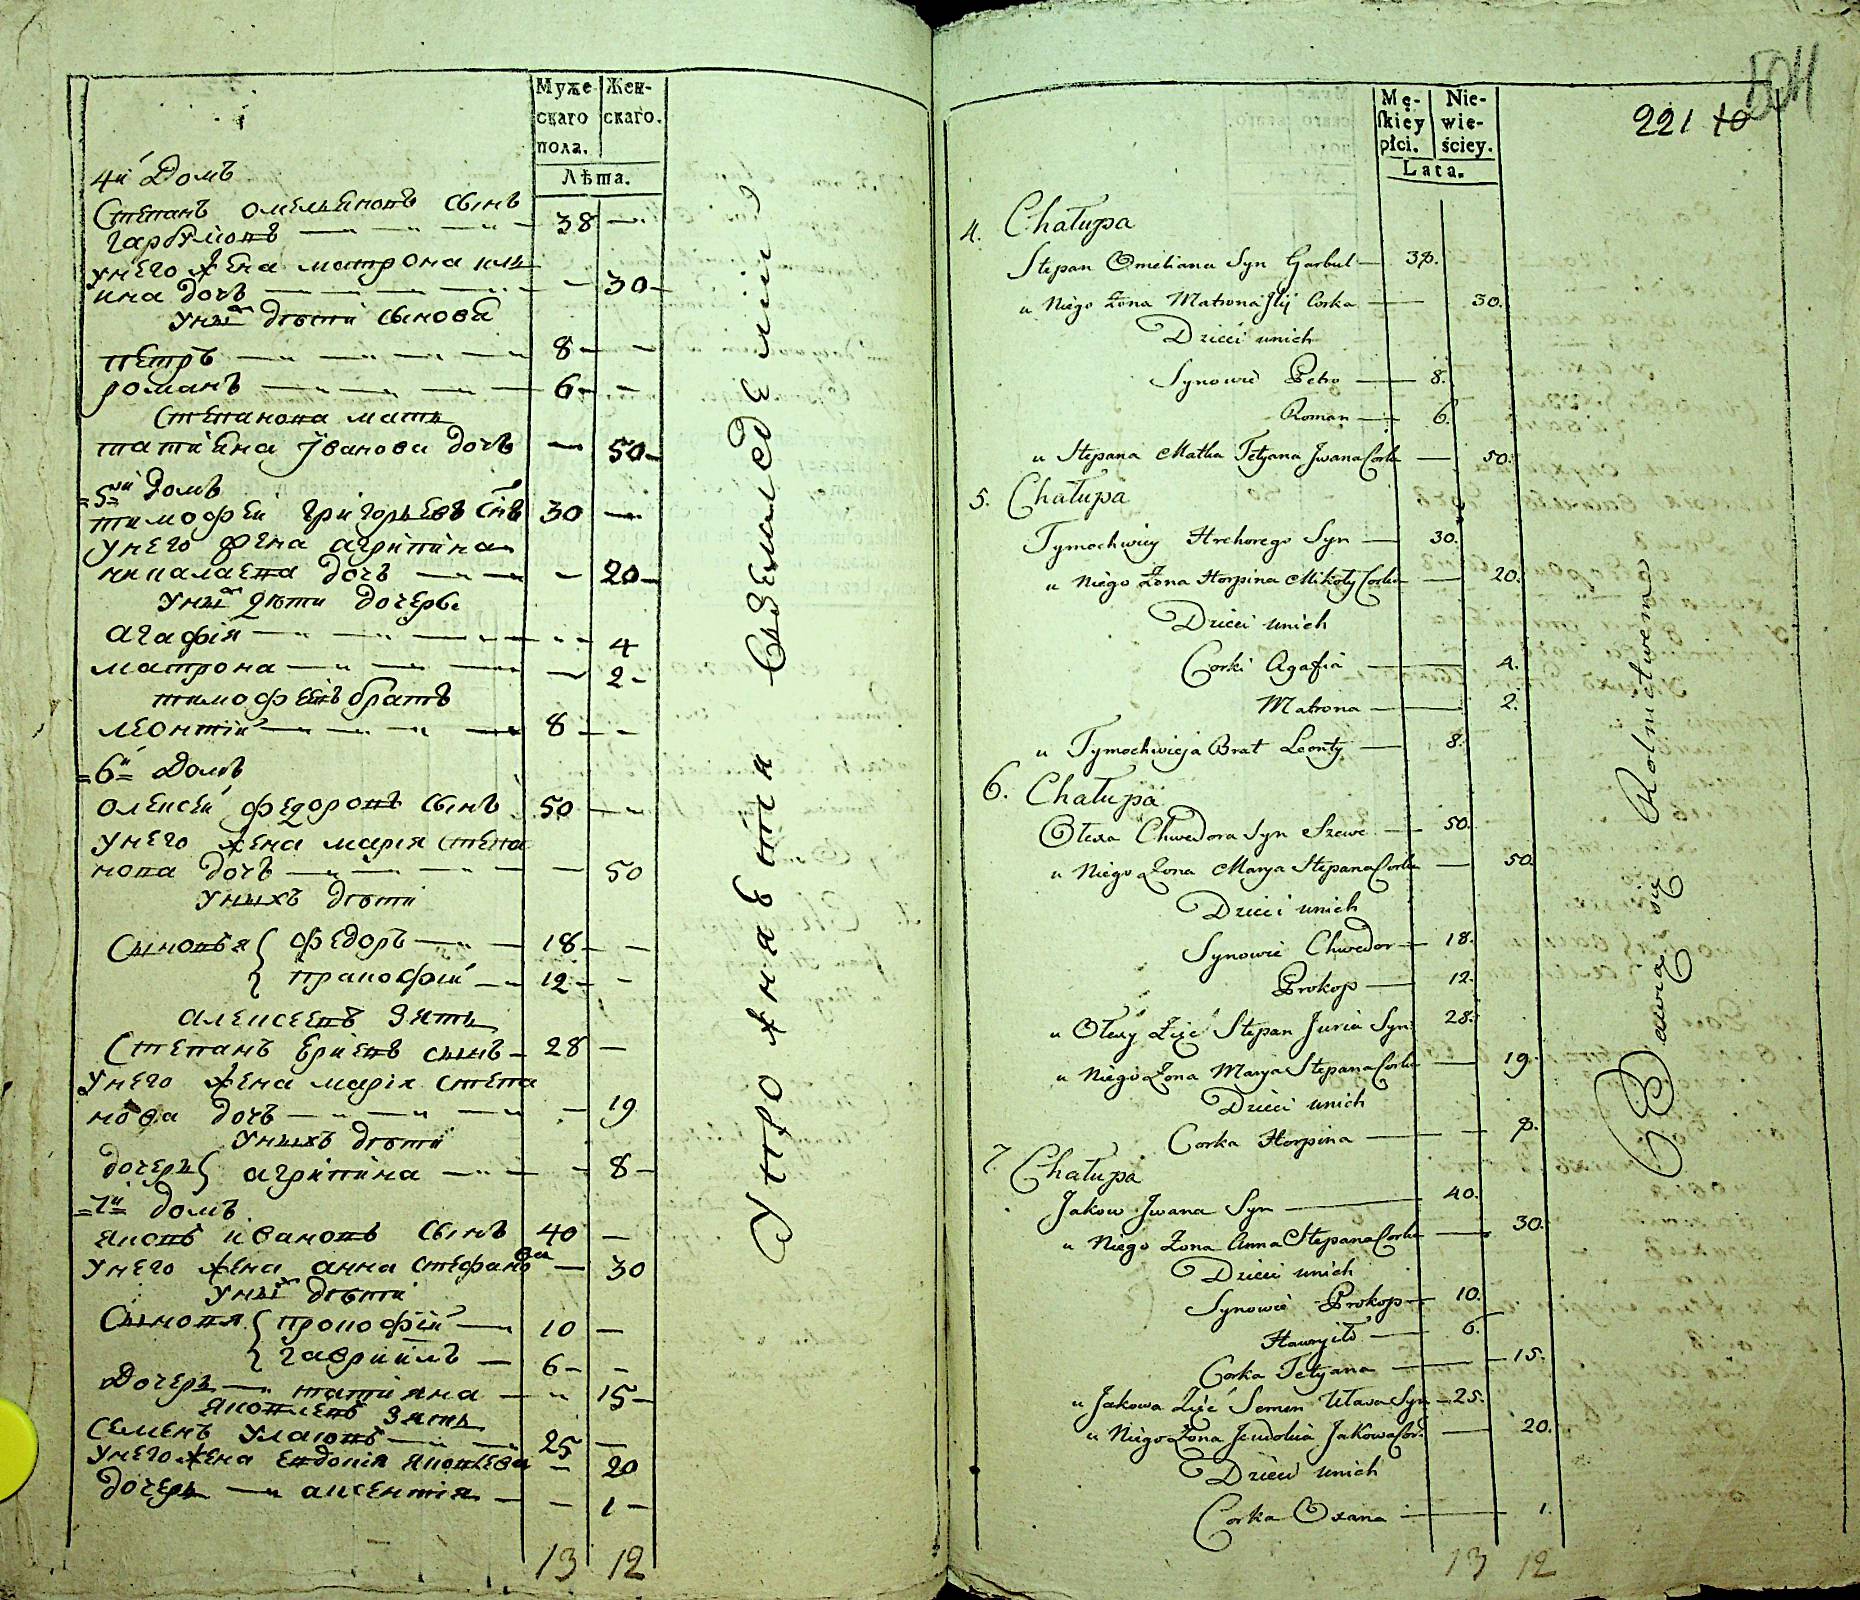 Муже
скаго
пола.
Жен-
скаго.
Лѣта.
4й Домъ
Степанъ омельяновъ сынъ
гарбузовъ — 38 —
унего жена матрона или
ина дочь — 30
уних дѣти сынови
петръ — 8 —
романъ — 6 —
степанова мать
татияна Іванова дочь — 50
5й Домъ
тимофей григорьевъ снъ 30 —
унего жена агрипина
николаева дочь — 20
уних дѣти дочерѣ
агафія — 4
матрона — 2
тимофеевъ братъ
леонтій — 8 —
6й Домъ
олексей федоровъ сынъ 50 —
унего жена марія степа
нова дочь — 50
унихъ дѣти
Сыновья { федоръ — 18 —
{ прокофій — 12 —
алексеевъ зять
Степанъ юриевъ сынъ 28 —
унего жена марія степа
нова дочь — 19
унихъ дѣти
дочерь { агрипина — 8
7й домъ
яковъ ивановъ сынъ 40 —
унего жена анна стефанова — 30
уних дѣти
Сыновя { прокофій — 10 —
{ гавриилъ — 6 —
Дочерь — татияна — 15
яковлевъ зять
семенъ уласовъ — 25 —
унего жена евдокія яковлева — 20
дочерь — аксентия — 1
13 12
Упро жнаети Сяземледелии
504
221 10
Mę-
skiey
płci.
Nie-
wie-
ściey.
Lata.
4. Chałupa
Stepan Omeliana Syn Garbuz — 38.
u Niego Żona Matrona Jlij Corka — 30.
Dzieci unich
Synowie Petro — 8.
Roman — 6.
u Stepana Matka Tetyana Jwana Corka — 50.
5. Chałupa
Tymochwiey Hrehorego Syn — 30.
u Niego Żona Horpina Mikoły Corka — 20.
Dzieci unich
Corki Agafia — 4.
Matrona — 2.
u Tymochwieja Brat Leonty — 8.
6. Chałupa
Ołexa Chwedora Syn Szewc — 50.
u Niego Żona Marya Stepana Corka — 50.
Dzieci unich
Synowie Chwedor — 18.
Prokop — 12.
u Ołexy Zięć Stepan Juria Syn 28.
u Niego Żona Marya Stepana Corka — 19.
Dzieci unich
Corka Horpina — 8.
7. Chałupa
Jakow Jwana Syn — 40.
u Niego Żona Anna Stepana Corka — 30.
Dzieci unich
Synowie Prokop — 10.
Hawryło — 6.
Corka Tetyana — 15.
u Jakowa Zięć Semen Ułasa Syn — 25.
u Niego Żona Jewdokia Jakowa Cor: — 20.
Dzieci unich
Corka Oxana — 1.
13 12
Bawią się Rolnictwem